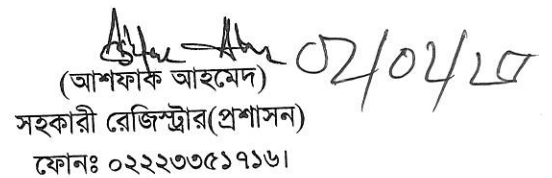 (আশফাক আহমেদ)
সহকারী রেজিস্ট্রার(প্রশাসন)
ফোনঃ ০২২২৩৩৫১৭১৬১।